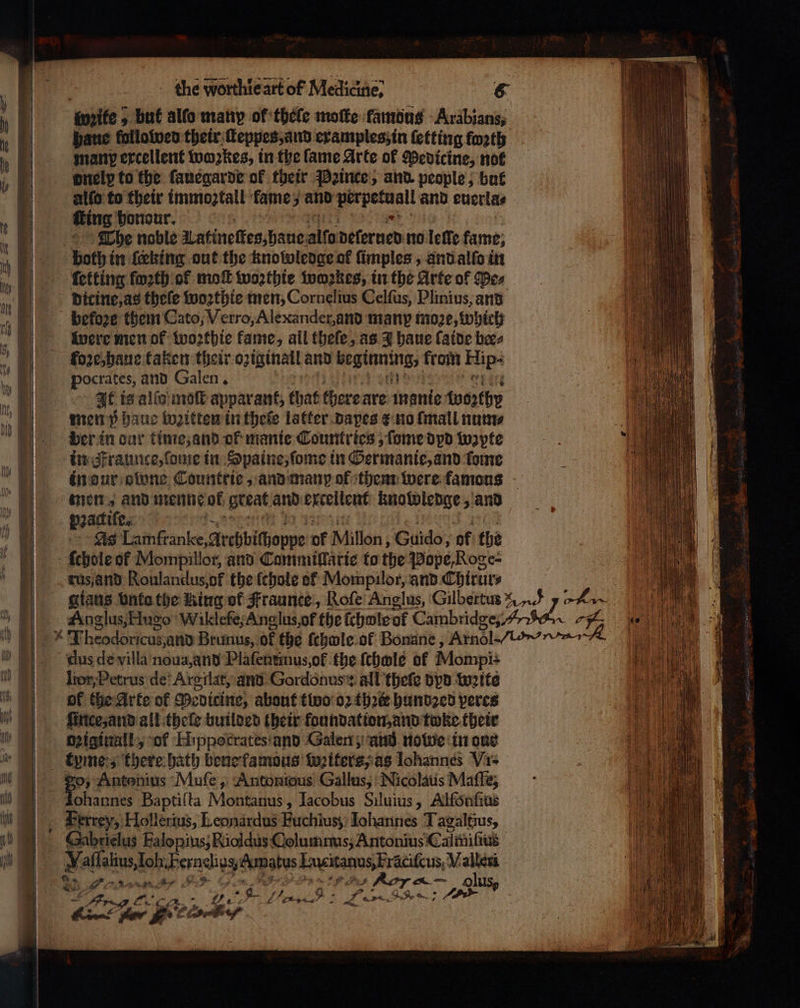 the worthie art of Medicine, 6
write, but also many of these moste famous Arabians,
haue followed their steppes, and examples, in setting forth
many excellent workes, in the same Arte of Medicine, not
onely to the sauegarde of their Prince, and people, but
also to their immortall fame, and perpetuall and euerlas-
sting honour.
The noble Latinestes, haue also deserued no lesse fame,
both in seeking out the knowledge of simples, and also in
setting forth of most worthie workes, in the Arte of Me-
dicine, as these worthie men, Cornelius Celsus, Plinius, and
before them Cato, Verro, Alexander, and many more, which
were men of worthie fame, all these, as I haue saide bee-
fore, haue taken their originall and beginning, from Hip-
pocrates, and Galen.
It is also most apparant, that there are manie worthy
men yͭ haue written in these latter dayes & no small num-
ber in our time, and of manie Countries, some dyd wryte
in Fraunce, some in Spaine, some in Germanie, and some
in our owne Countrie, and many of them were famous
men, and menne of great and excellent knowledge, and
practise.
As Lamfranke, Archbishoppe of Millon, Guido, of the
schole of Mompillor, and Commissarie to the Pope, Roge-
rus, and Roulandus, of the schole of Mompilor, and Chirur-
gians vnto the King of Fraunce, Rose Anglus, Gilbertus
Anglus, Hugo Wiklefe, Anglus, of the schoole of Cambridge,
Theodoricus, and Brunus, of the schoole of Bonane, Arnol-
dus de villa noua, and Plasentinus, of the schoole of Mompi-
lior, Petrus de Argilat, and Gordonus: all these dyd write
of the Arte of Medicine, about two or thrée hundred yeres
since, and all these builded their foundation, and tooke their
originall, of Hippocrates and Galen, and nowe in our
tyme, there hath bene famous writers, as Iohannes Vi-
go, Antonius Muse, Antonious Gallus, Nicolaus Masse,
Iohannes Baptista Montanus, Iacobus Siluius, Alfonsius
Ferrey, Hollerius, Leonardus Fuchius, Iohannes Tagaltius,
Gabrielus Falopius, Rioldus Columnus, Antonius Calmisius
Vassalius, Ioh. Fernelius, Amatus Lusitanus, Fraciscus, Valleri
olus,